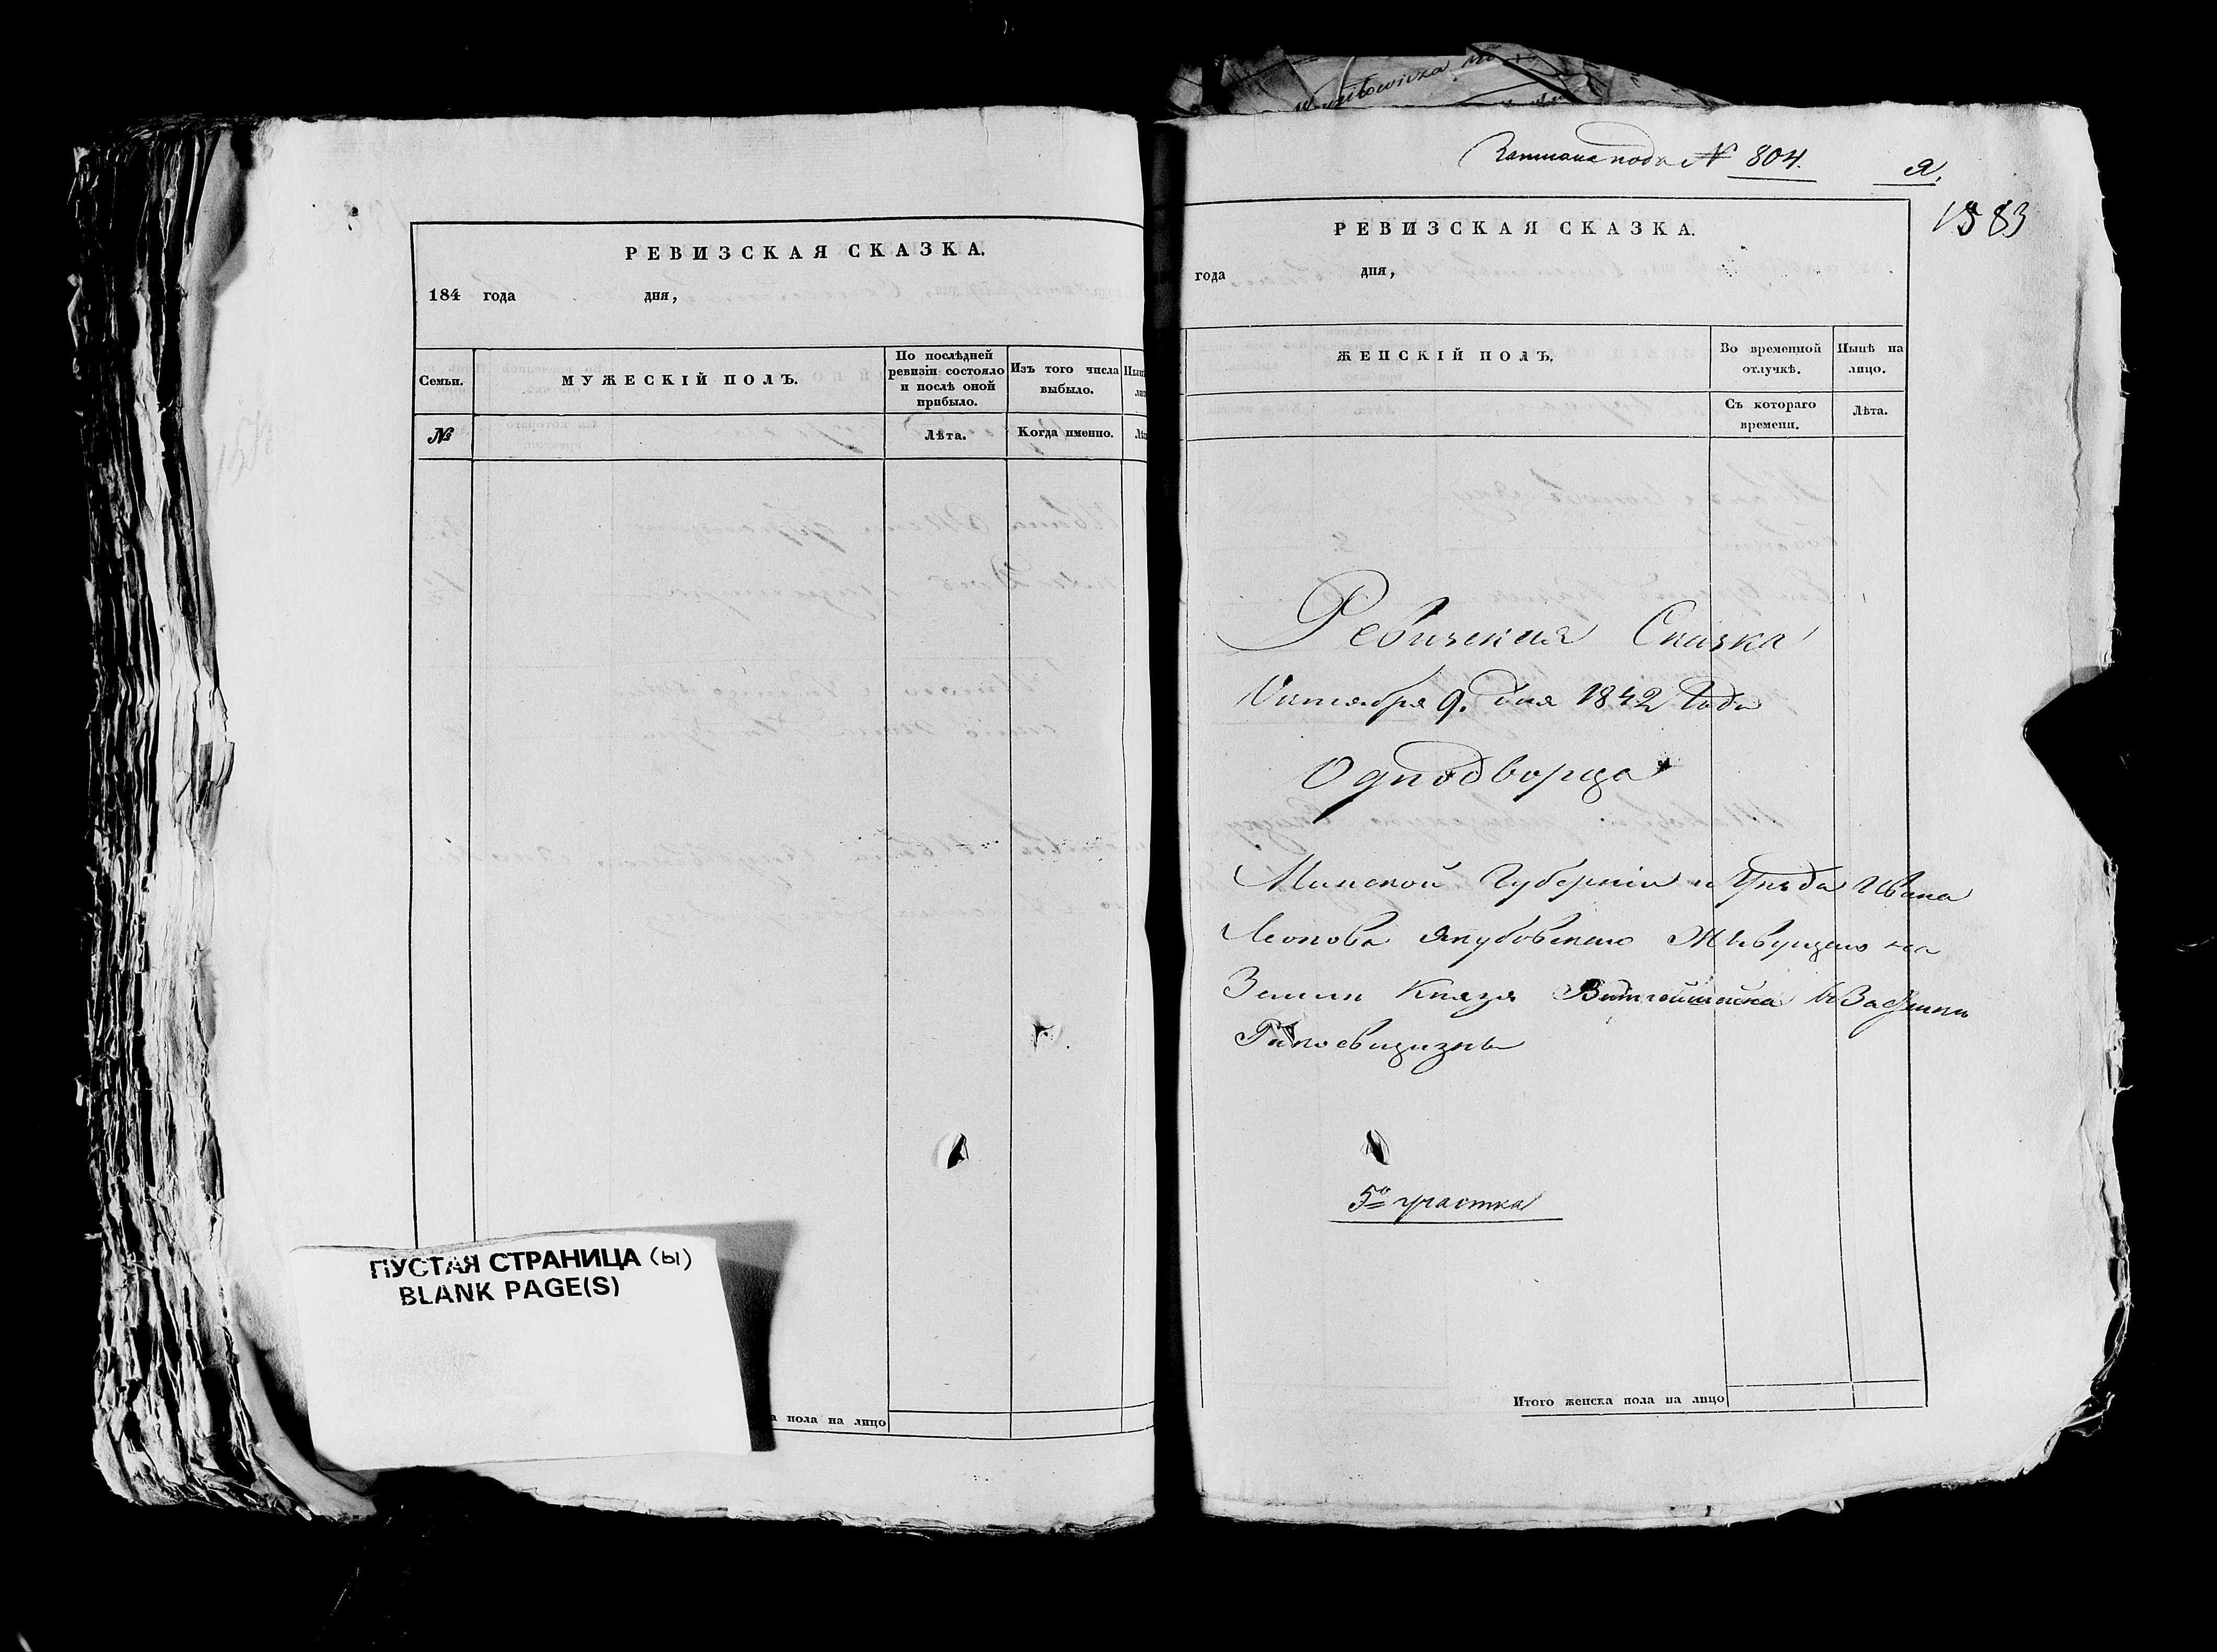 РЕВИЗСКАЯ СКАЗКА.
184 года дня,
Семьи.
МУЖЕСКІЙ ПОЛЪ.
По послѣдней ревизіи состояло и послѣ оной прибыло.
Изъ того числа выбыло.
№
Лѣта.
Когда именно.
ПУСТАЯ СТРАНИЦА (ы)
BLANK PAGE(S)
пола на лицо
Записана подъ № 804.
Я.
1583
РЕВИЗСКАЯ СКАЗКА.
года дня,
ЖЕНСКІЙ ПОЛЪ.
Во временной отлучкѣ.
Нынѣ на лицо.
Съ котораго времени.
Лѣта.
Ревизская Сказка
Октября 9. дня 1842 Года
Однодворца
Минской Губерніи и Уѣзда Ивана
Леонова Якубовскаго Живущаго на
Земли Князя Витгенштейна въ Застѣнки
5го участка
Итого женска пола на лицо